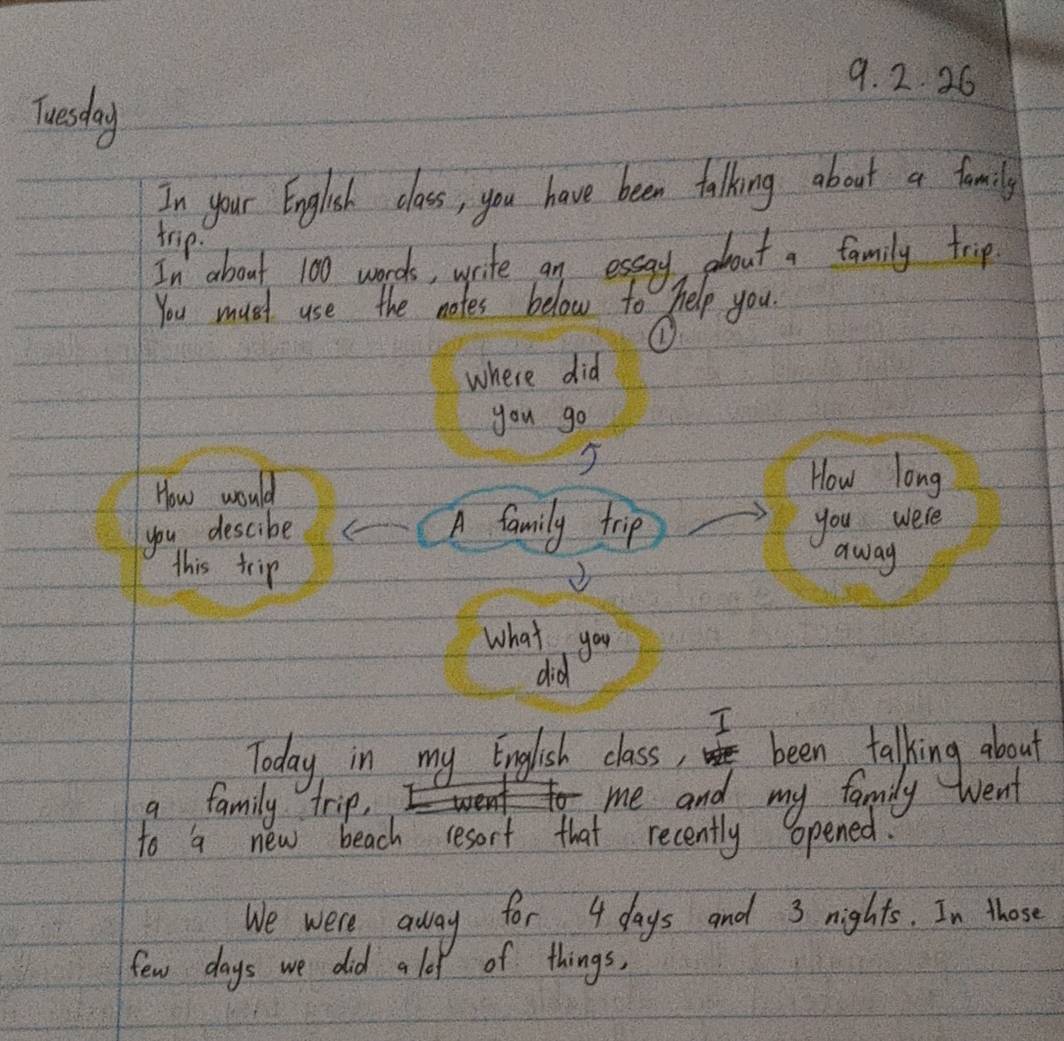 9.2.26
Tuesday
In your English class, you have been talking about a family
trip.
In about 100 words, write an essay about a family trip.
You must use the notes below to help you.
①
Where did
you go
How would
you descibe
this trip
A family trip
How long
you were
away
What you
did
I
Today in my English class, we been talking about
a family trip. I went to me and my family went
to a new beach resort that recently opened.
We were away for 4 days and 3 nights. In those
few days we did a lot of things,